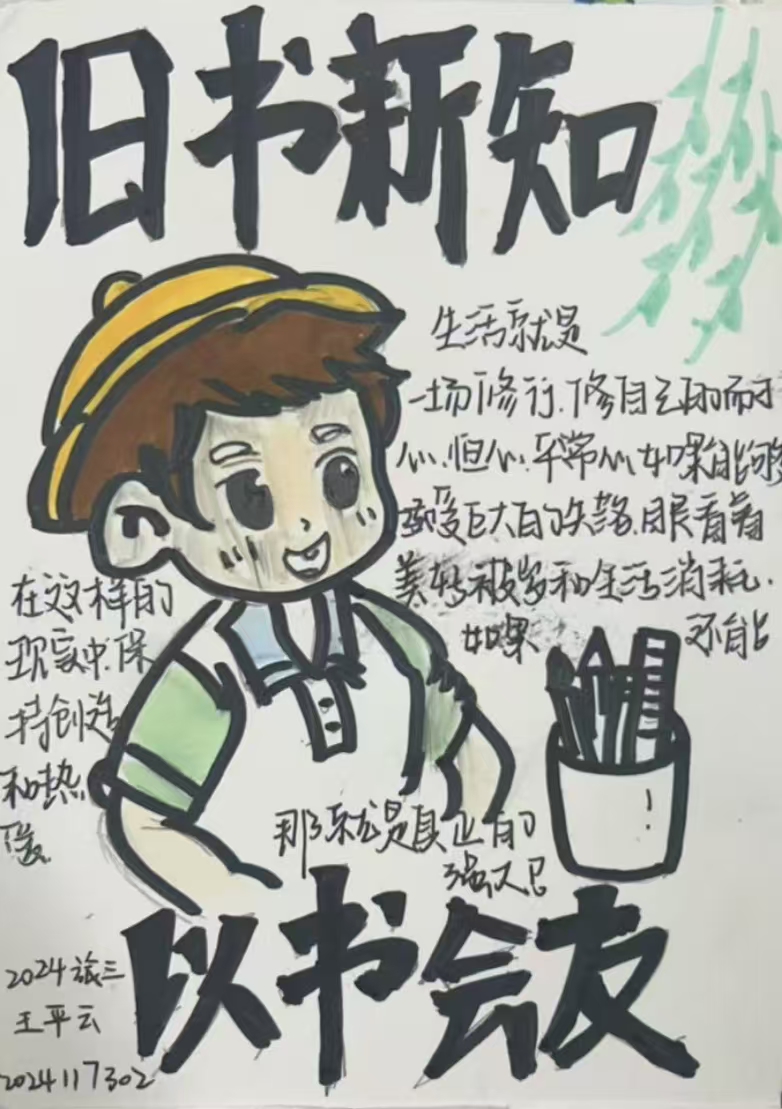 旧书新知
生活就是
一场修行.修自己的而于
心.恒心.平常心如果能够
承受巨大的失落.眼看着
美好被岁和生活消耗.
如果
还能
在这样的
现实中.保
持创造
和热
爱.
那就是真正的
强大已
以书会友
2024旅三
王平云
2024117302